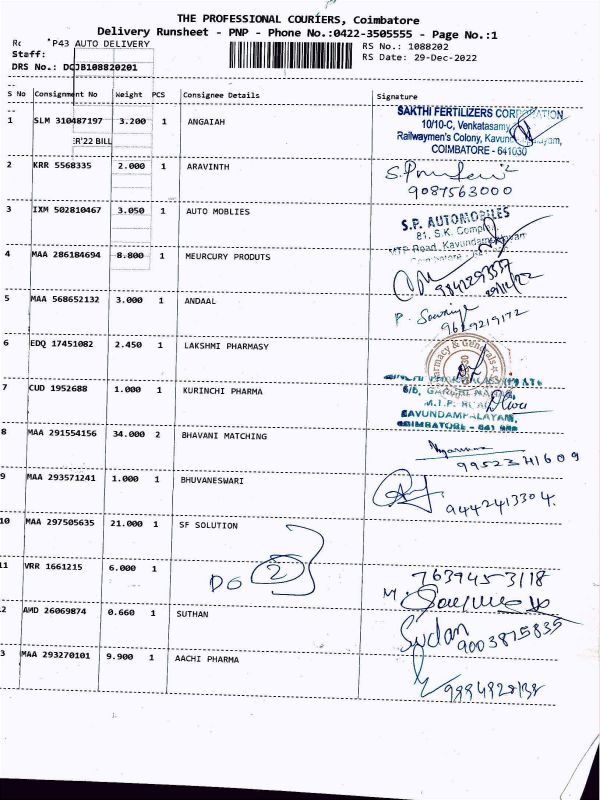 THE PROFESSIONAL COURIERS, Coimbatore
Delivery Runsheet - PNP - Phone No.:0422-3505555 - Page No.:1
P43 AUTO DELIVERY RS No.: 1088202
Staff: RS Date: 29-Dec-2022
DRS No.: DCJB108820201
S No Consignment No Weight PCS Consignee Details Signature
1 SLM 310487197 3.200 1 ANGAIAH
SAKTHI FERTILIZERS CORPORATION
10/10-C, Venkatasamy
Railwaymen's Colony,
COIMBATORE - 641030
ER'22 BILL
2 KRR 5568335 2.000 1 ARAVINTH
9087563000
3 IXM 502810467 3.050 1 AUTO MOBLIES
S.P. AUTOMOBILES
81, S.K. Complex,
MTP Road, Kavundampalayam
4 MAA 286184694 8.800 1 MEURCURY PRODUTS
29/12/22
5 MAA 568652132 3.000 1 ANDAAL
9629219172
6 EDQ 17451082 2.450 1 LAKSHMI PHARMASY
7 CUD 1952688 1.000 1 KURINCHI PHARMA
KAVUNDAMPALAYAM,
COIMBATORE -
8 MAA 291554156 34.000 2 BHAVANI MATCHING
9952341609
9 MAA 293571241 1.000 1 BHUVANESWARI
9442413304.
10 MAA 297505635 21.000 1 SF SOLUTION
11 VRR 1661215 6.000 1
DG 2
7639453118
2 AMD 26069874 0.660 1 SUTHAN
Sudan
9003875835
3 MAA 293270101 9.900 1 AACHI PHARMA